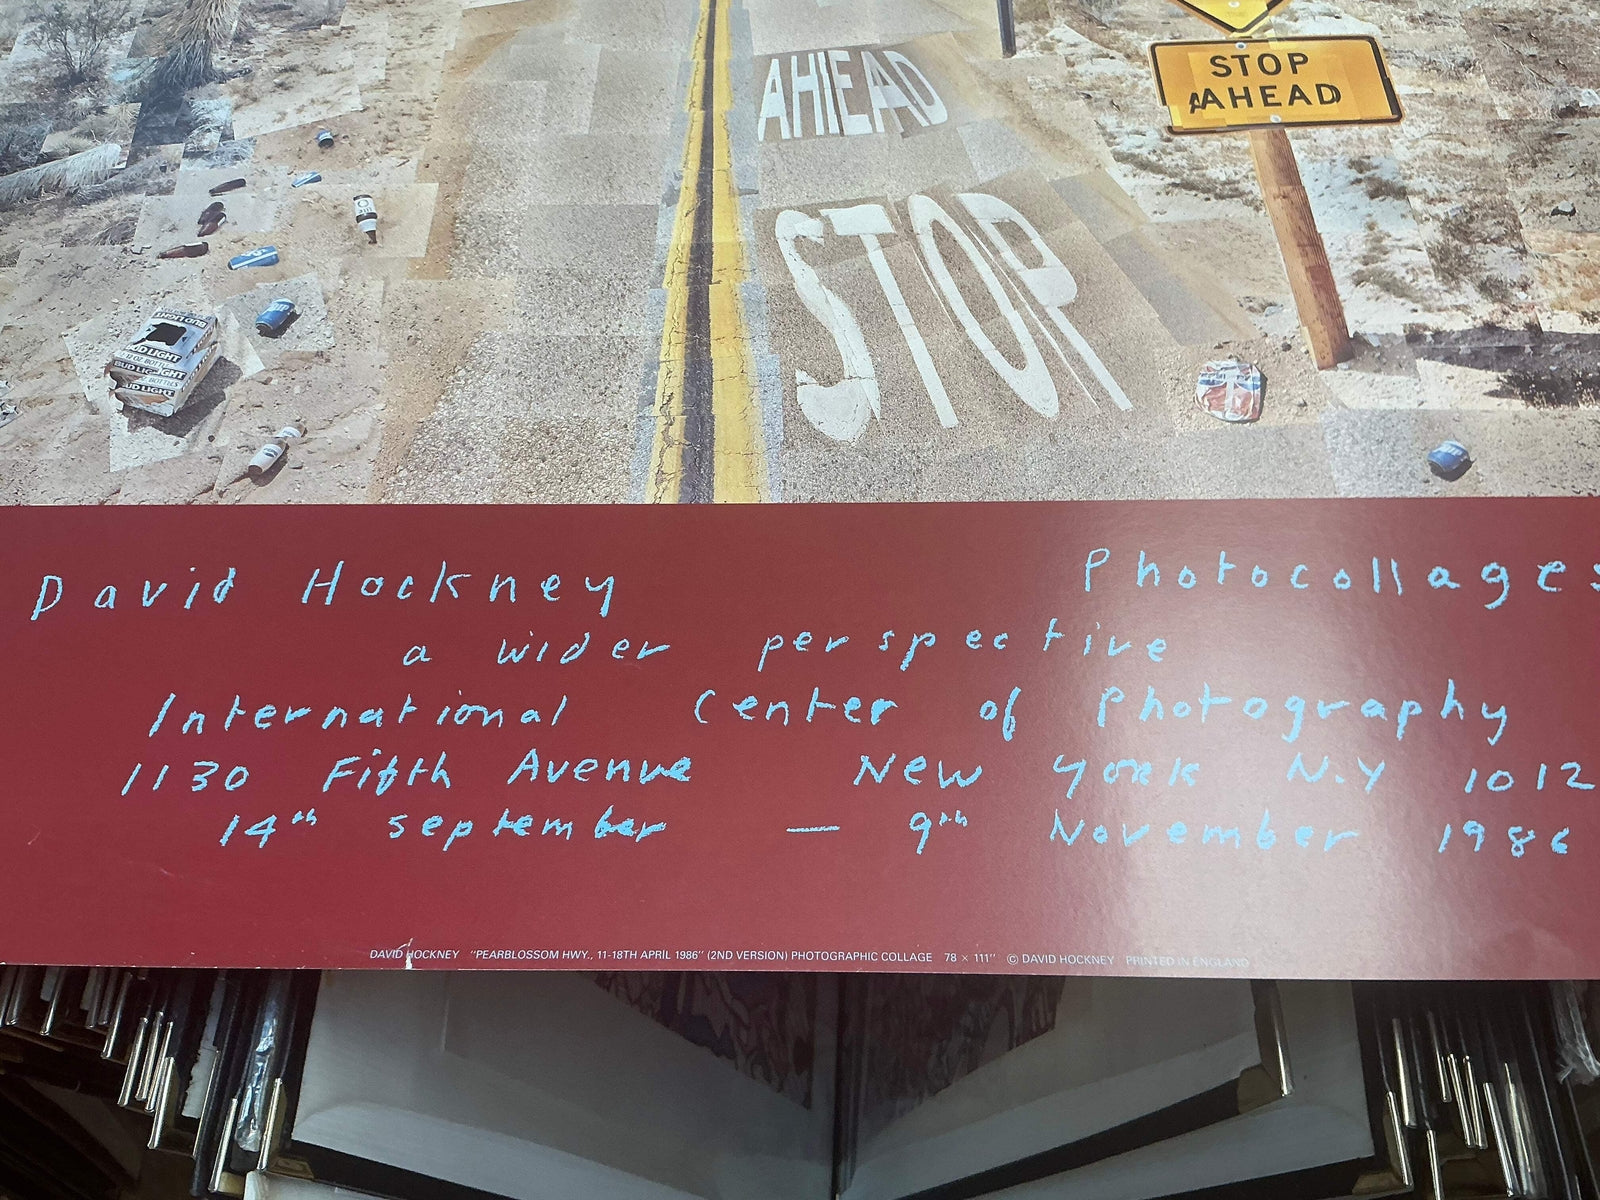 AHEAD
STOP
AHEAD
STOP
BUD LIGHT
BUD LIGHT
BUD LIGHT
David Hockney Photocollages
a wider perspective
International Center of Photography
1130 Fifth Avenue New York N.Y 1012
14th september — 9th November 1986
DAVID HOCKNEY "PEARBLOSSOM HWY., 11-18TH APRIL 1986" (2ND VERSION) PHOTOGRAPHIC COLLAGE 78 × 111" © DAVID HOCKNEY PRINTED IN ENGLAND